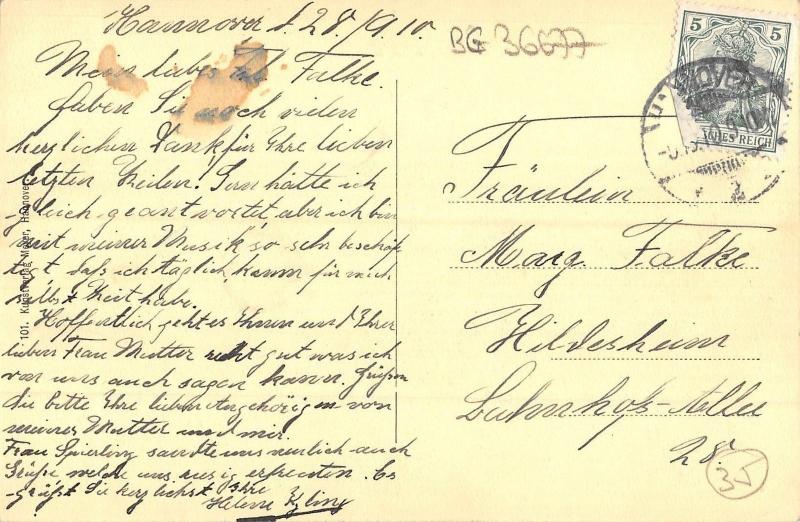 Hannover d. 28/9.10.
BG 36677
Mein liebes Falke.
Haben Sie noch vielen
herzlichen Dank für Ihre lieben
letzten Zeilen! Gern hätte ich
gleich geantwortet aber ich bin
mit meiner Musik so sehr beschäf
tigt daß ich täglich kaum für mich
selbst Zeit habe.
Hoffentlich geht es Ihnen und Ihrer
lieben Frau Mutter recht gut was ich
von uns auch sagen kann. Grüßen
Sie bitte Ihre lieben Angehörigen von
meiner Mutter und mir.
Frau sandte uns neulich auch
Grüße welche uns riesig erfreuten. Es
grüßt Sie herzlichst Ihre
Helene
101. Kunstverlag Meyer, Hannover
5 5
HANNOVER
SCHES REICH
Fräulein
Marg. Falke
Hildesheim
Bahnhofs-Allee
28.
35